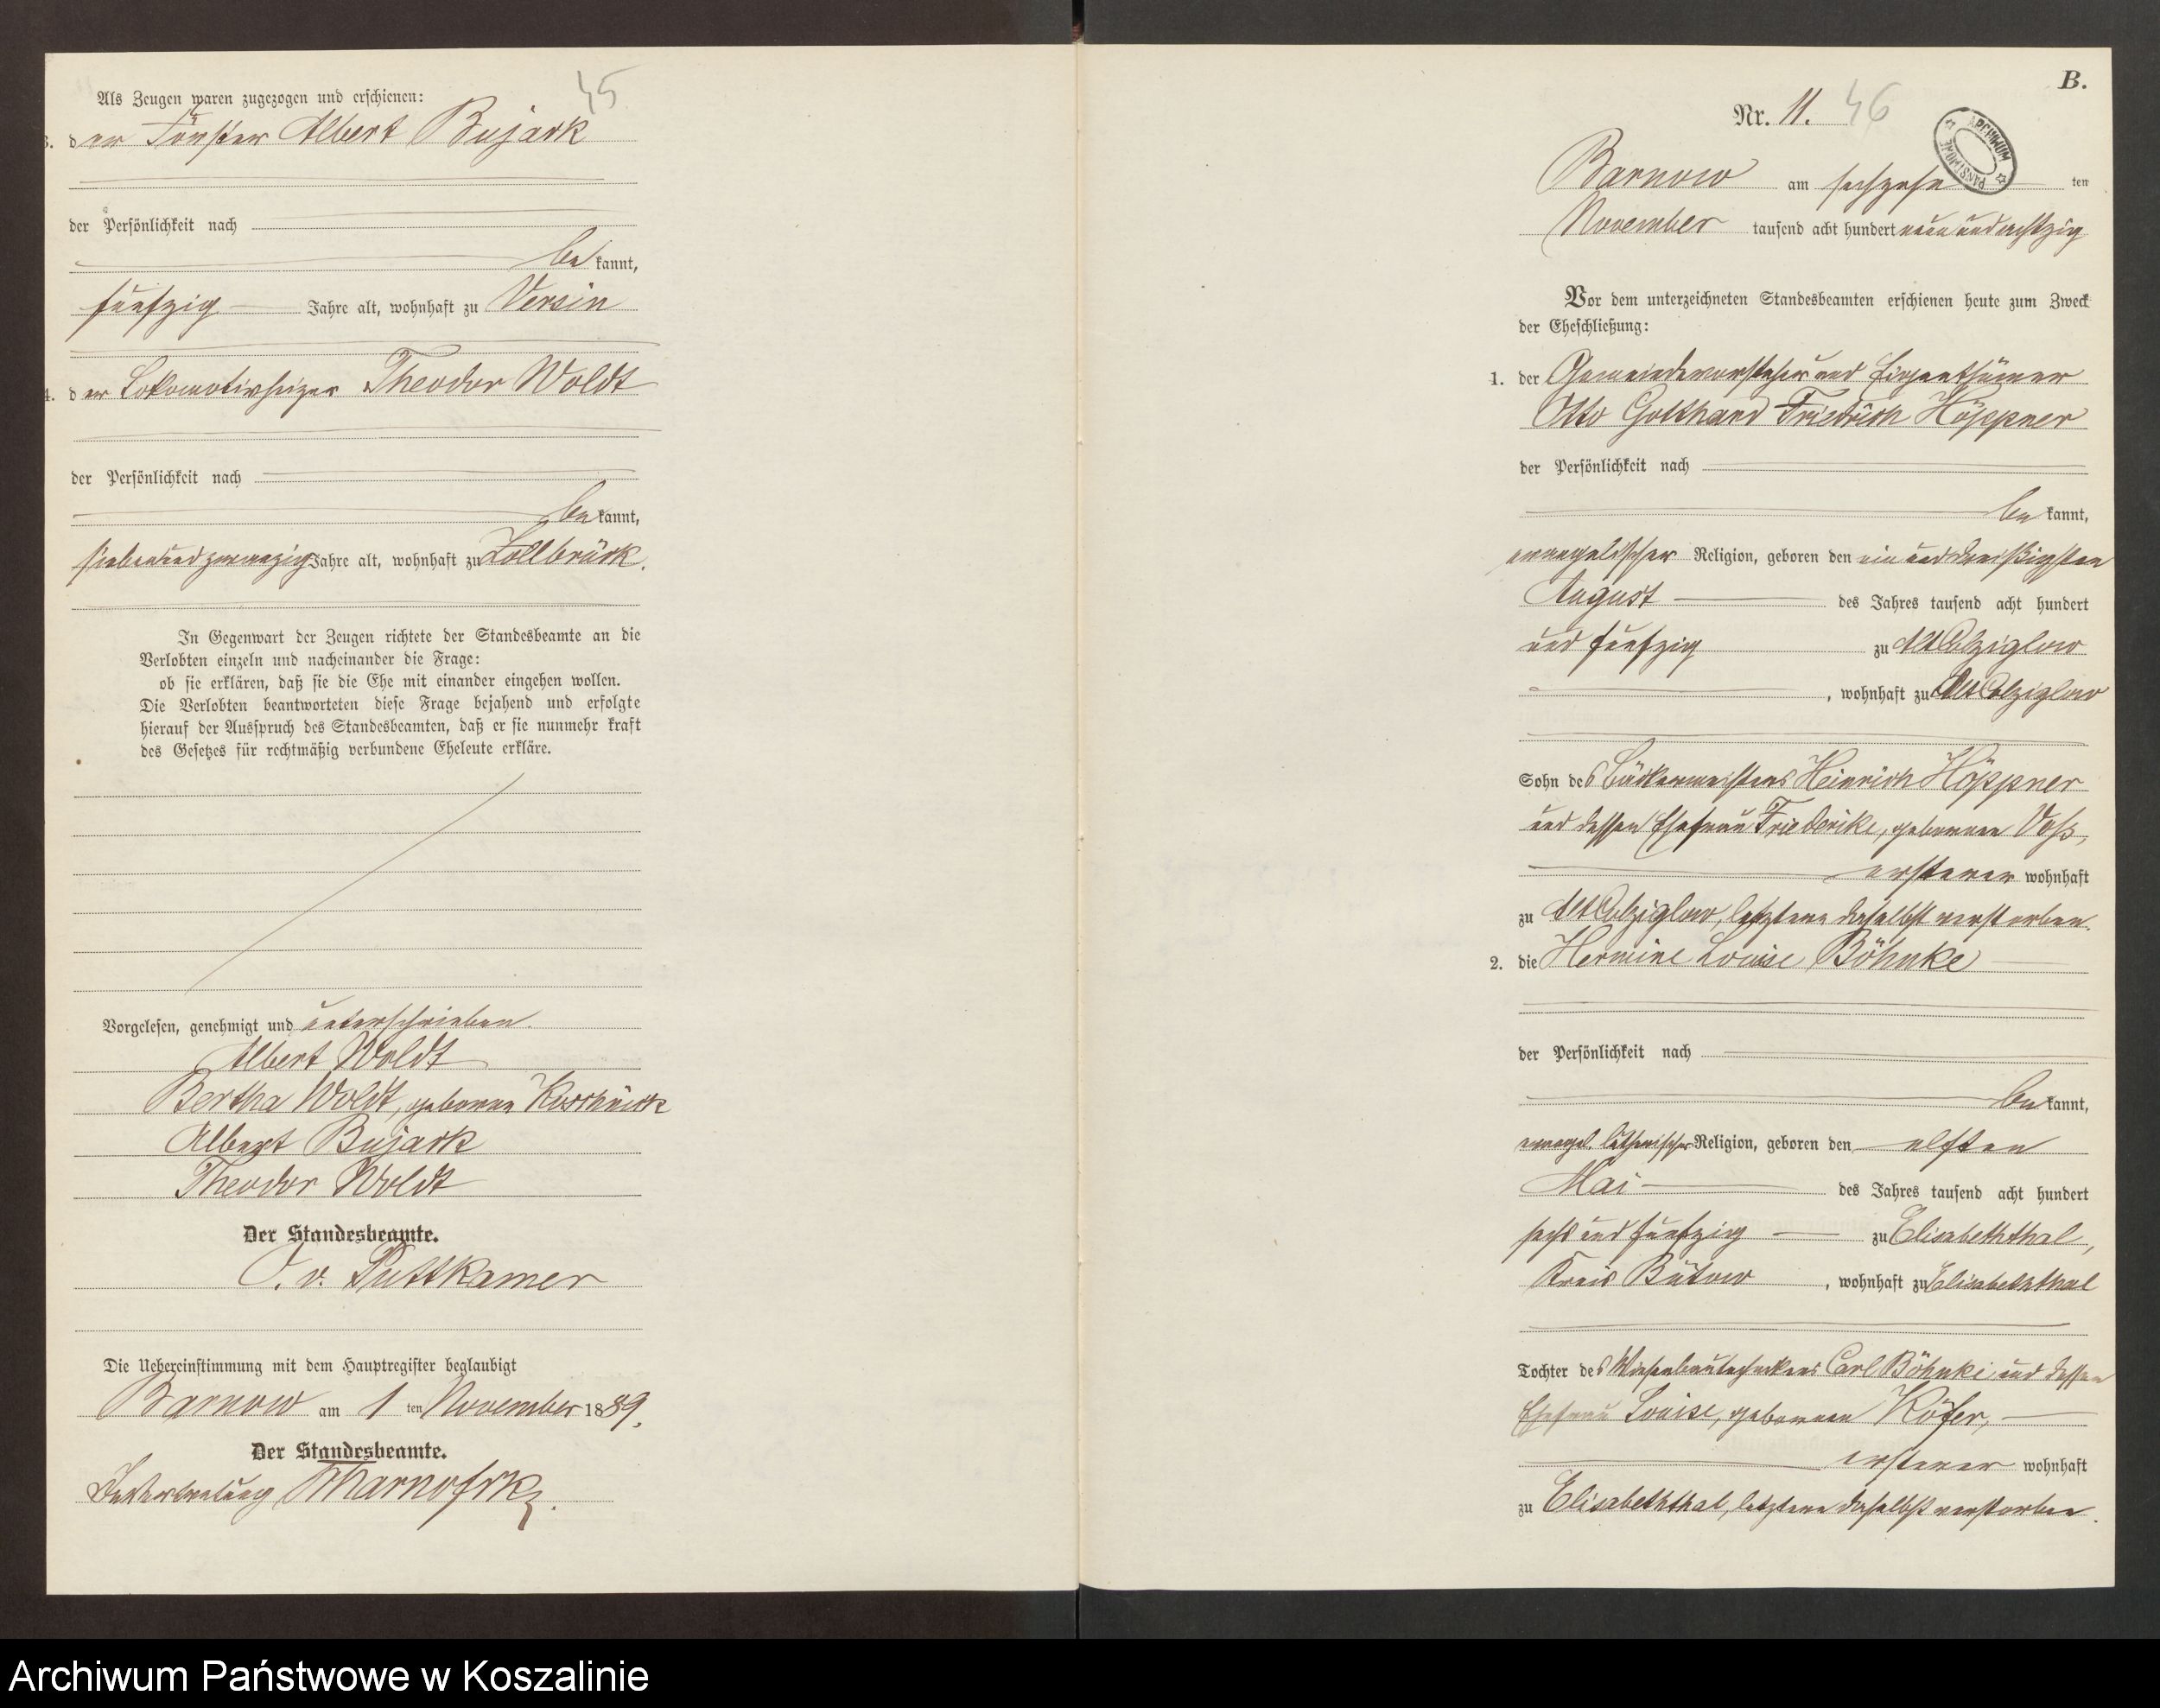 45
Als Zeugen waren zugezogen und erschienen:
3. der Förster Albert Bujack
der Persönlichkeit nach
bekannt,
fünfzig Jahre alt, wohnhaft zu Versin
4. der Lokomotivheizer Theodor Woldt
der Persönlichkeit nach
bekannt,
siebenundzwanzig Jahre alt, wohnhaft zu Zollbrück.
In Gegenwart der Zeugen richtete der Standesbeamte an die
Verlobten einzeln und nacheinander die Frage:
ob sie erklären, daß sie die Ehe mit einander eingehen wollen.
Die Verlobten beantworteten diese Frage bejahend und erfolgte
hierauf der Ausspruch des Standesbeamten, daß er sie nunmehr kraft
des Gesetzes für rechtmäßig verbundene Eheleute erkläre.
Vorgelesen, genehmigt und unterschrieben.
Albert Woldt
Bertha Woldt, geborene
Albert Bujack
Theodor Woldt
Der Standesbeamte.
O. v. Puttkamer
Die Uebereinstimmung mit dem Hauptregister beglaubigt
Barnow am 1 ten November 1889.
Der Standesbeamte.
In Vertretung
B.
Nr. 11. 46
ARCHIWUM PAŃSTWOWE
Barnow am sechzehn ten
November tausend acht hundert neun und achtzig
Vor dem unterzeichneten Standesbeamten erschienen heute zum Zweck
der Eheschließung:
1. der Gemeindevorsteher und Eigenthümer
Otto Gotthard Friedrich Höppner
der Persönlichkeit nach
bekannt,
evangelischer Religion, geboren den ein und dreißigsten
August des Jahres tausend acht hundert
und fünfzig zu Alt Colziglow
, wohnhaft zu Alt Colziglow
Sohn des Bäckermeisters Heinrich Höppner
und dessen Ehefrau Friederike, geborenen Voß,
ersterer wohnhaft
zu Alt Colziglow, letztere daselbst verstorben.
2. die Hermine Louise Böhnke
der Persönlichkeit nach
bekannt,
evangel. lutherischer Religion, geboren den elften
Mai des Jahres tausend acht hundert
sechs und fünfzig zu Elisabeththal,
Kreis Bütow , wohnhaft zu Elisabeththal
Tochter des Wiesenbautechnikers Carl Böhnke und dessen
Ehefrau Louise, geborenen Köfer,
ersterer wohnhaft
zu Elisabeththal, letztere daselbst verstorben.
Archiwum Państwowe w Koszalinie